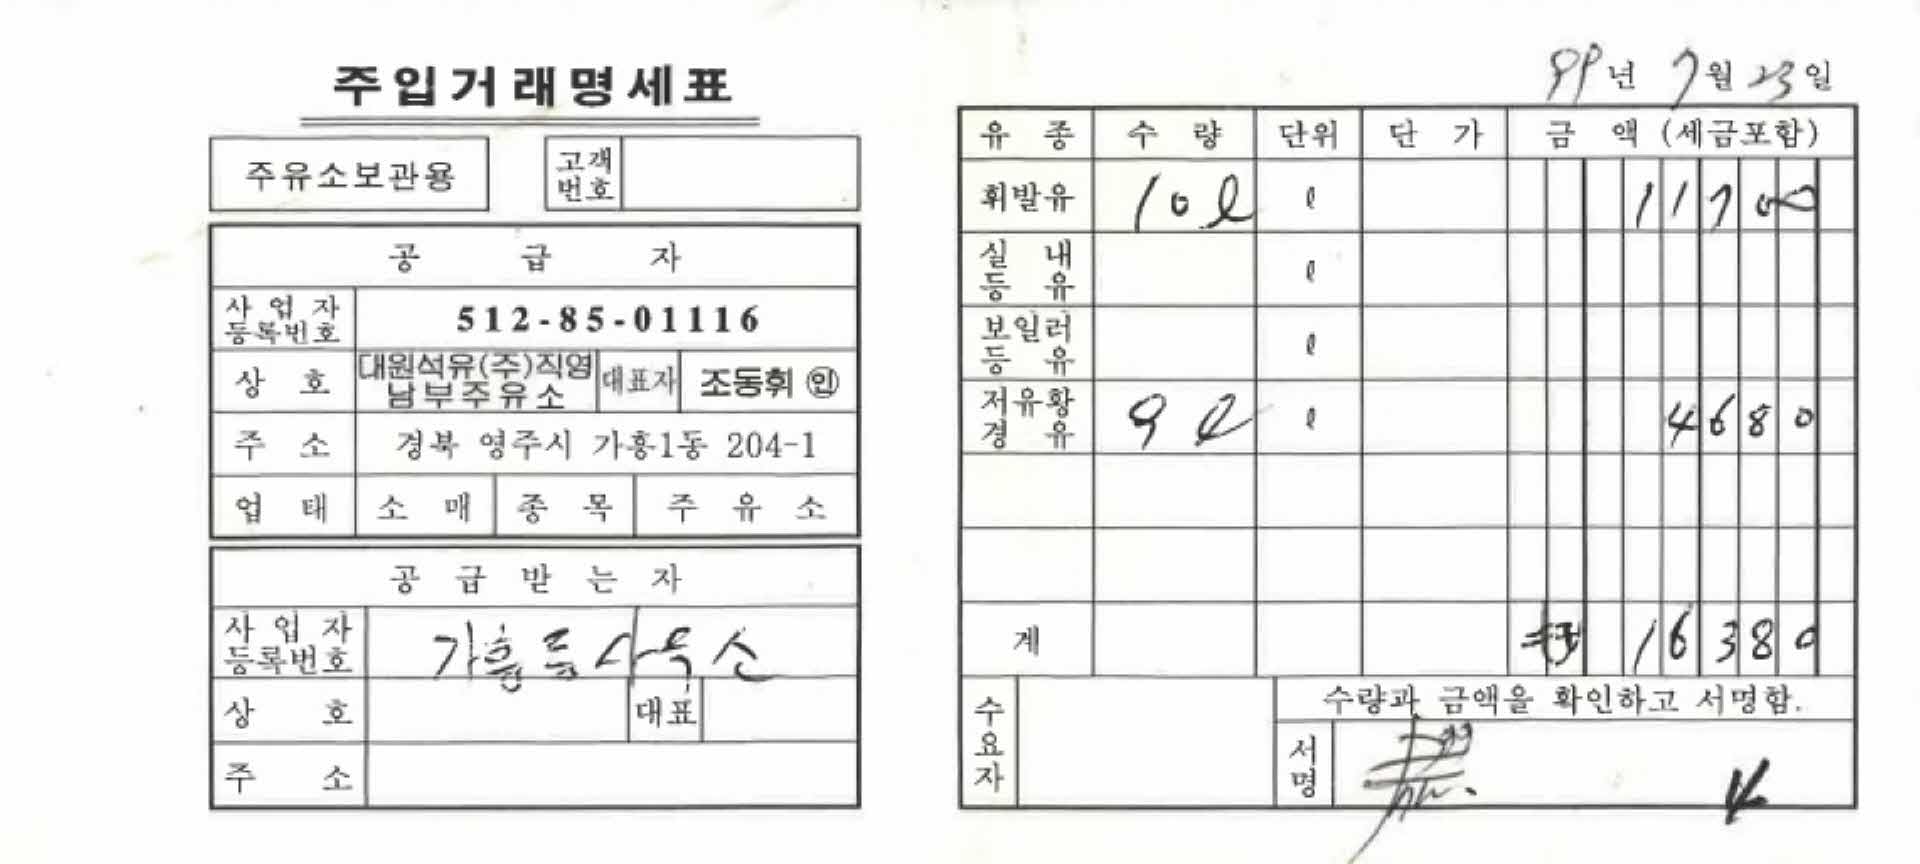 주입거래명세표
주유소보관용
고객
번호
공 급 자
사 업 자
등록번호
512-85-01116
상 호
대원석유(주)직영
남부주유소
대표자
조동휘 ㊞
주 소
경북 영주시 가흥1동 204-1
업 태
소 매
종 목
주 유 소
공 급 받 는 자
사 업 자
등록번호
가흥동사무소
상 호
대표
주 소
99년 7월 23일
유 종 수 량 단위 단 가 금 액 (세금포함)
휘발유 10ℓ ℓ 11700
실 내
등 유
ℓ
보일러
등 유
ℓ
저유황
경 유
9ℓ ℓ 4680
계 16380
수요자
수량과 금액을 확인하고 서명함.
서명